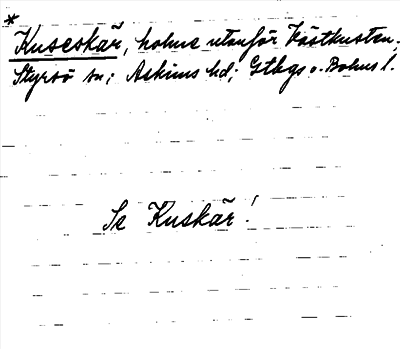 *
Kuseskär, holme utanför Västkusten,
Styrsö sn; Askims hd; Gtbgs o. Bohus l.
Se Kuskär!